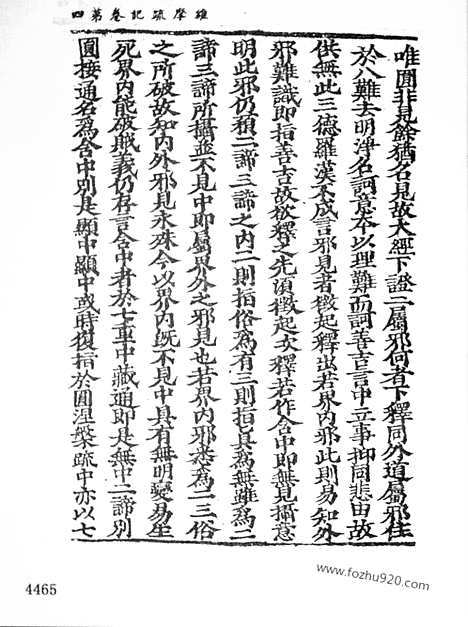 維摩疏記卷第四
唯圓非見餘猶名見故大經下證二屬邪何者下釋同外道屬邪住
於八難去明淨名訶意今以理難而訶善吉言中立事抑同悲田故
供無此三德羅漢不成言邪見者徵起釋出若界內邪此則易知外
邪難識即指善吉故欲釋之先須徵起次釋若作含中即無見攝意
明此邪仍積二諦三諦之內二則指俗為有三則指真為無雖為二
諦三諦所攝並不見中即屬界外之邪見也若界內邪悉為二三俗
之所破故知內外邪見永殊今以界內既不見中具有無明變易生
死界內能破賊義仍存言含中者於七重中藏通即是無中二諦別
圓接通名為含中別是顯中顯中或時復指於圓涅槃疏中亦以七
4465
www.fozhu920.com